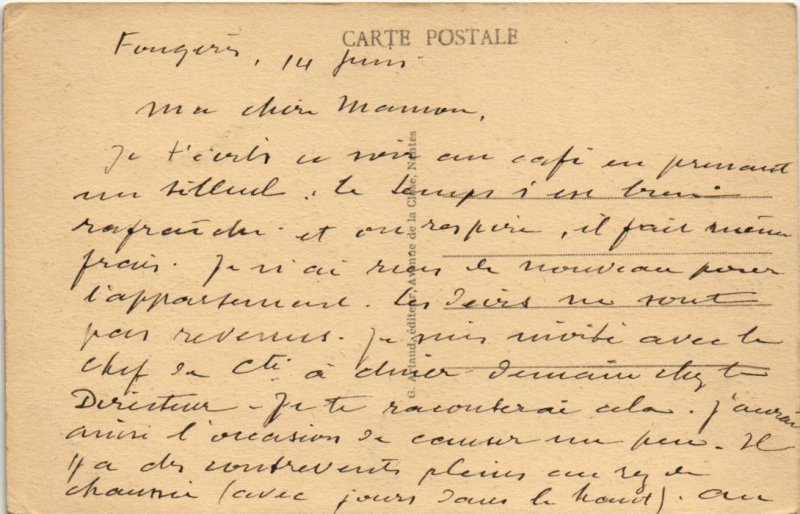 CARTE POSTALE
Fougères, 14 juin
Ma chère Maman,
Je t'écris ce soir au café en prenant
un tilleul. Le temps s'est bien
rafraîchi et on respire, il fait même
frais. Je n'ai rien de nouveau pour
l'appartement. Les Jeirs ne sont
pas revenus. Je suis invité avec le
chef de Cie à dîner demain chez le
Directeur - Je te raconterai cela. J'aurai
ainsi l'occasion de causer un peu. Il
y a des contrevents pleins au rez de
chaussée (avec jours dans le haut). au
G. Artaud, éditeur, Avenue de la Close, Nantes